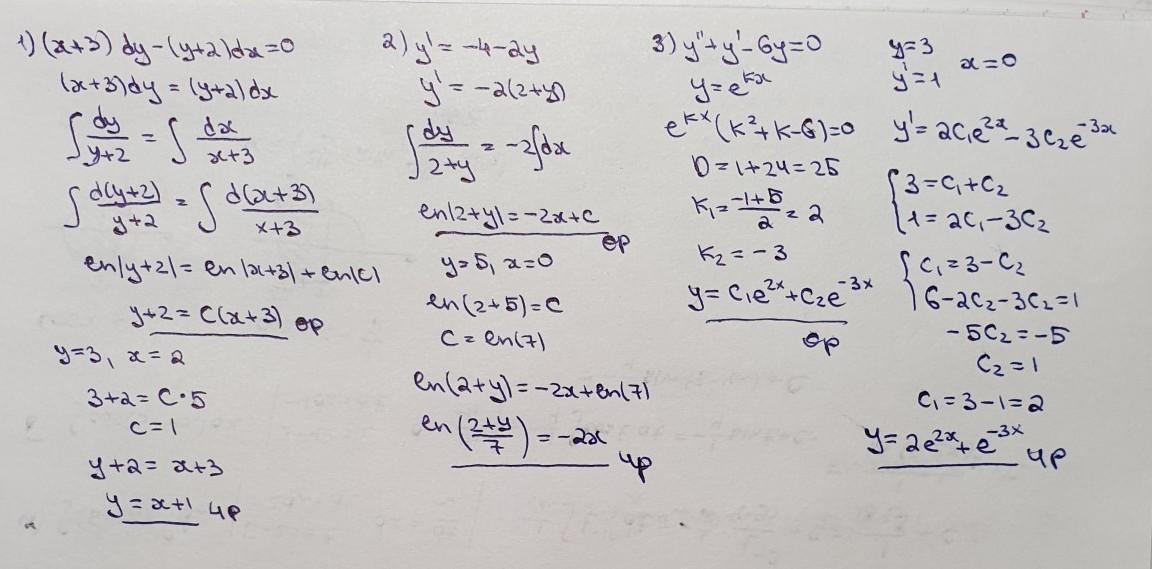 1) (x+3) dy-(y+2)dx=0
(x+3)dy = (y+2)dx
∫ dy/(y+2) = ∫ dx/(x+3)
∫ d(y+2)/(y+2) = ∫ d(x+3)/(x+3)
ln|y+2| = ln|x+3| + ln|C|
y+2 = C(x+3) ор
y=3, x=2
3+2= C·5
C=1
y+2= x+3
y=x+1 чр
2) y' = -4-2y
y' = -2(2+y)
∫ dy/(2+y) = -2∫dx
ln|2+y| = -2x+C
ор
y=5, x=0
ln(2+5)=C
C= ln(7)
ln(2+y)=-2x+ln(7)
ln((2+y)/7) = -2x чр
3) y''+y'-6y=0
y=e^(kx)
e^(kx)(k²+k-6)=0
D=1+24=25
k₁=(-1+5)/2=2
k₂=-3
y=C₁e^(2x)+C₂e^(-3x)
ор
y=3
y'=1 x=0
y'=2C₁e^(2x)-3C₂e^(-3x)
{ 3=C₁+C₂
1=2C₁-3C₂
{ C₁=3-C₂
6-2C₂-3C₂=1
-5C₂=-5
C₂=1
C₁=3-1=2
y=2e^(2x)+e^(-3x) чр